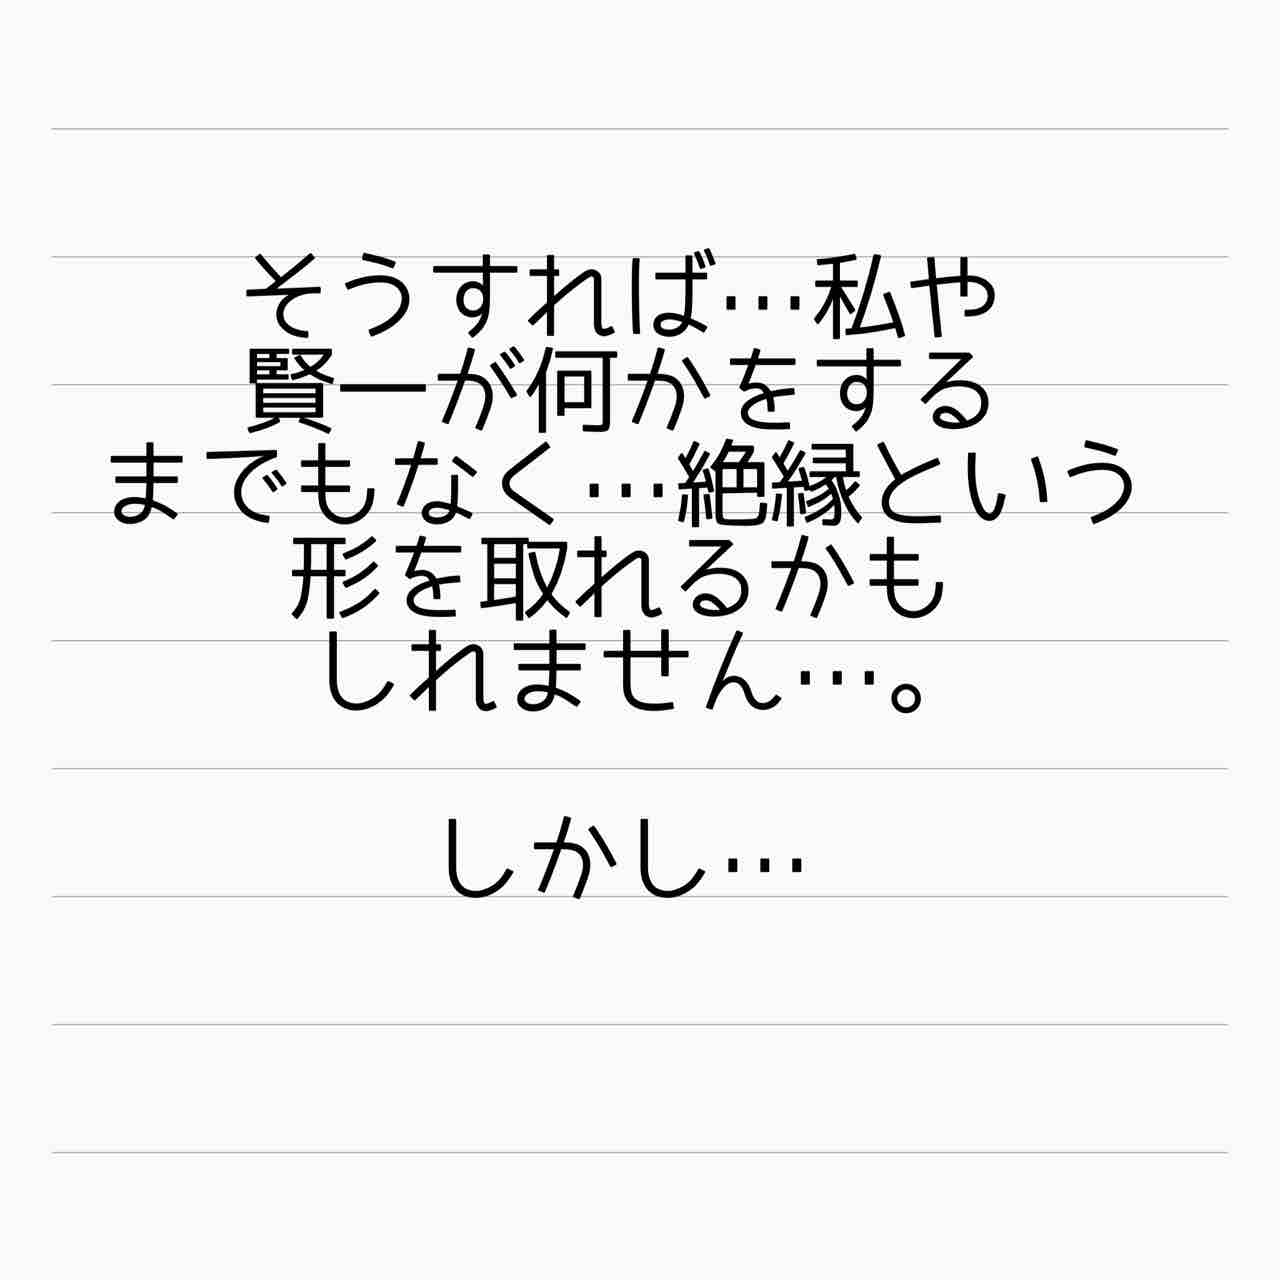 そうすれば…私や
賢一が何かをする
までもなく…絶縁という
形を取れるかも
しれません…。
しかし…